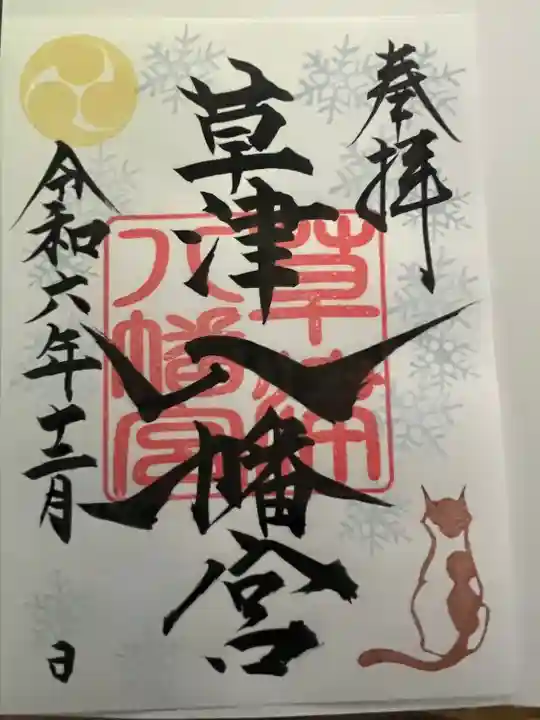 奉拝
草津八幡宮
草津八幡宮
令和六年十二月 日